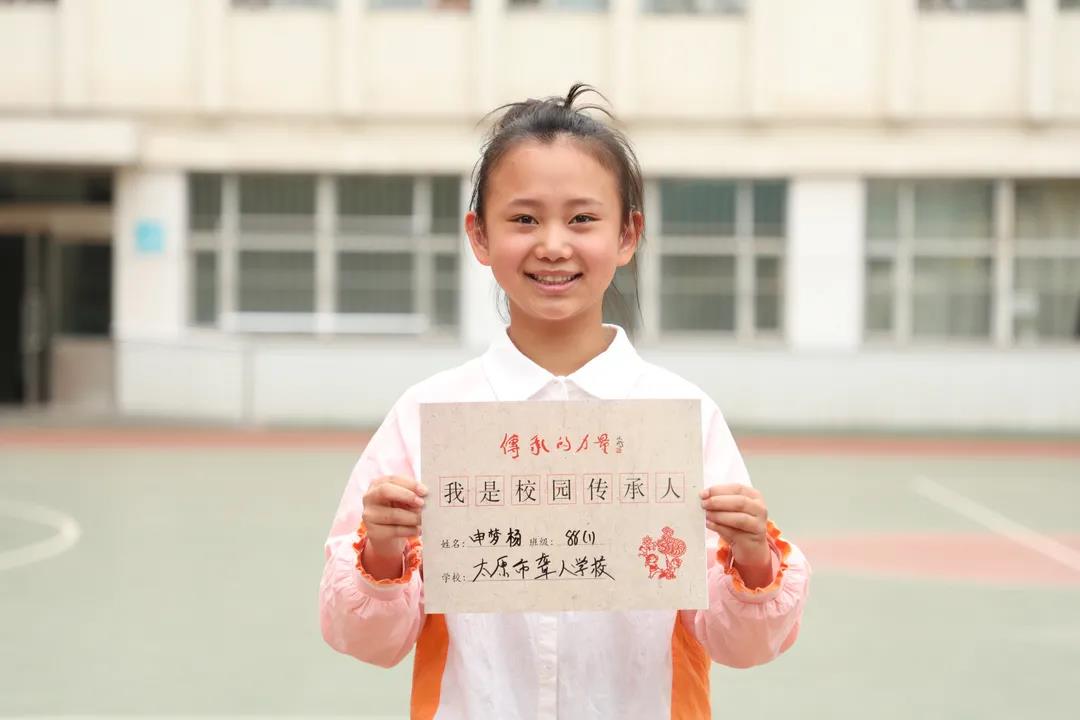 傳承的力量
我是校园传承人
姓名：申梦杨 班级：88(1)
学校：太原市聋人学校